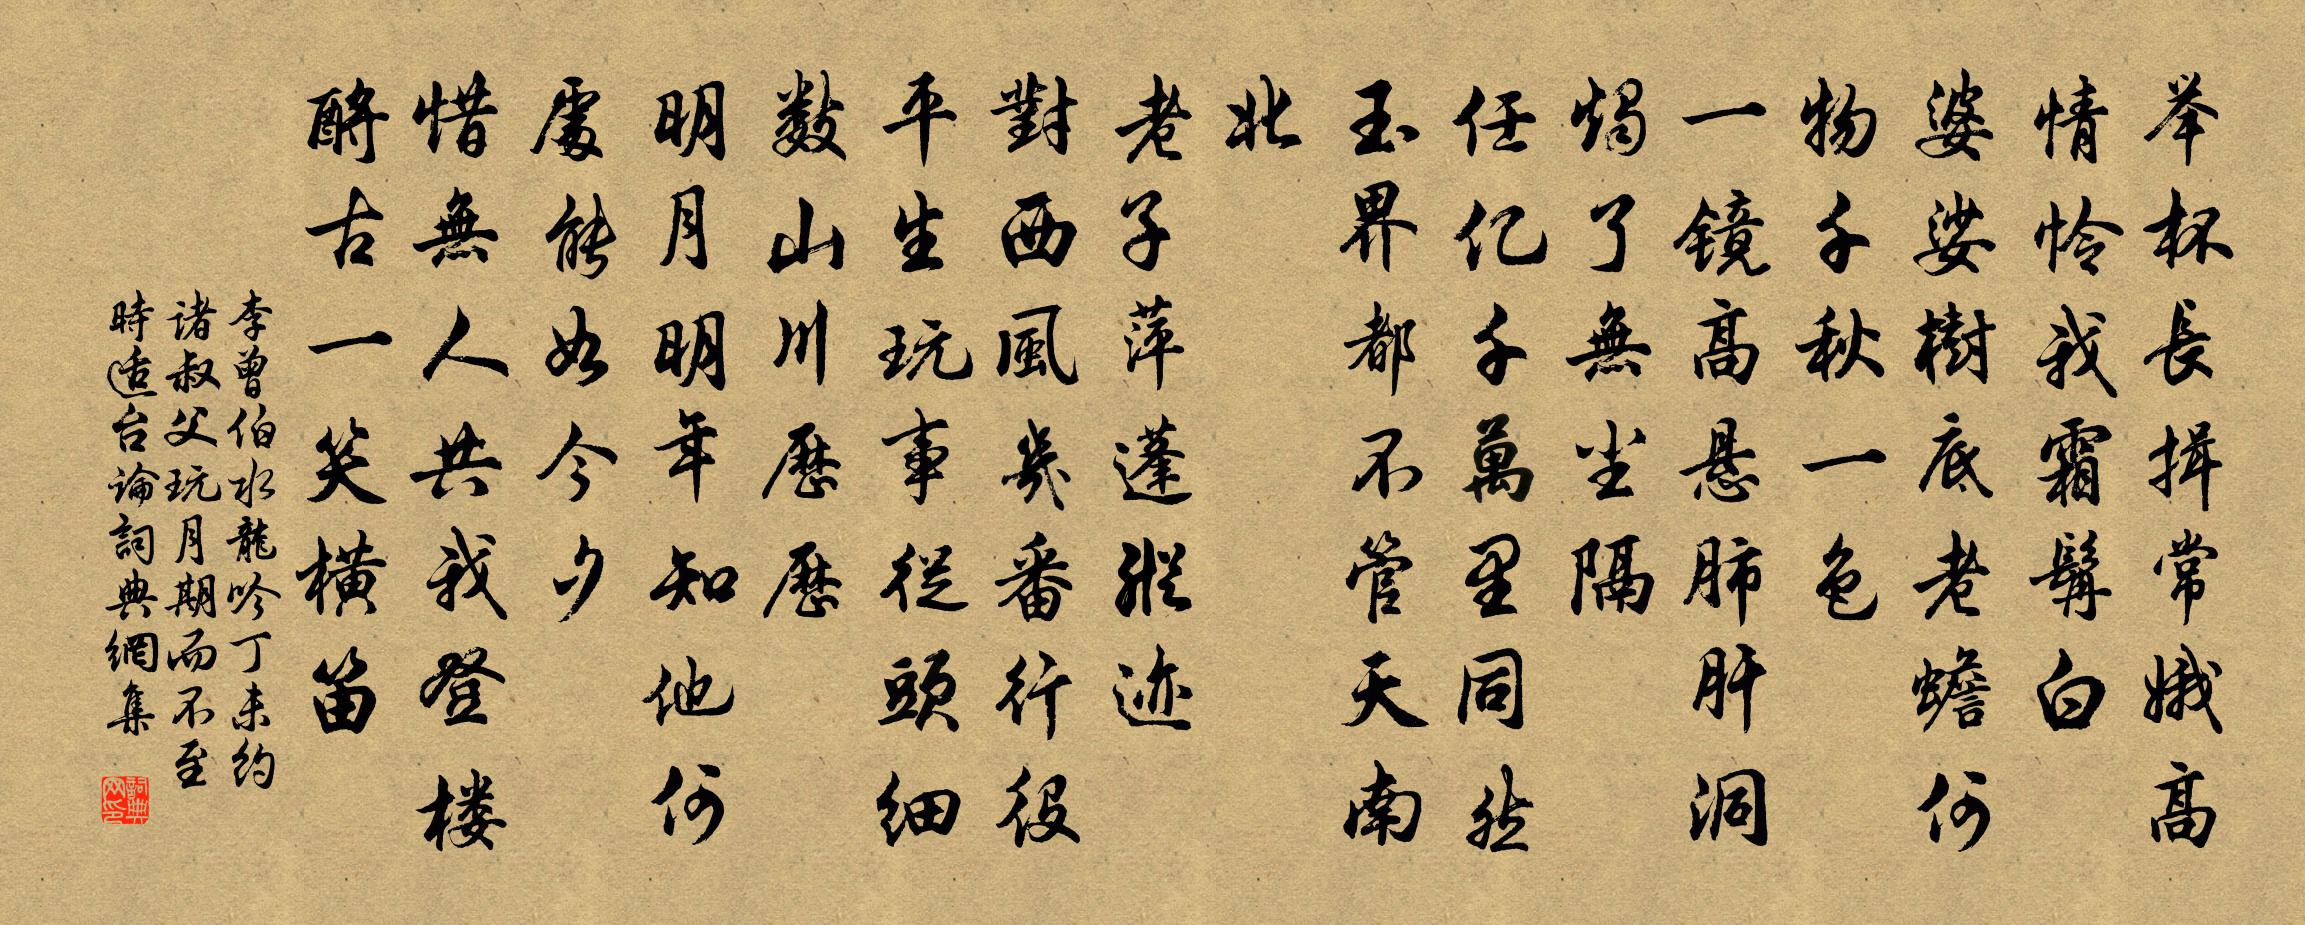 举杯長揖常娥高
情怜我霜髯白
婆娑樹底老蟾何
物千秋一色
一镜高悬肺肝洞
烛了無尘隔
任亿千萬里同然
玉界都不管天南
北
老子萍蓬蹤迹
對西風幾番行役
平生玩事從頭细
数山川歷歷
明月明年知他何
處能如今夕
惜無人共我登楼
酹古一笑横笛
李曾伯水龍吟丁未约
诸叔父玩月期而不至
時适台論詞典網集
詞典网印